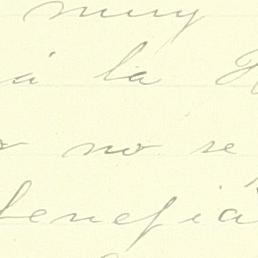 muy
á la H
no se
benefiá